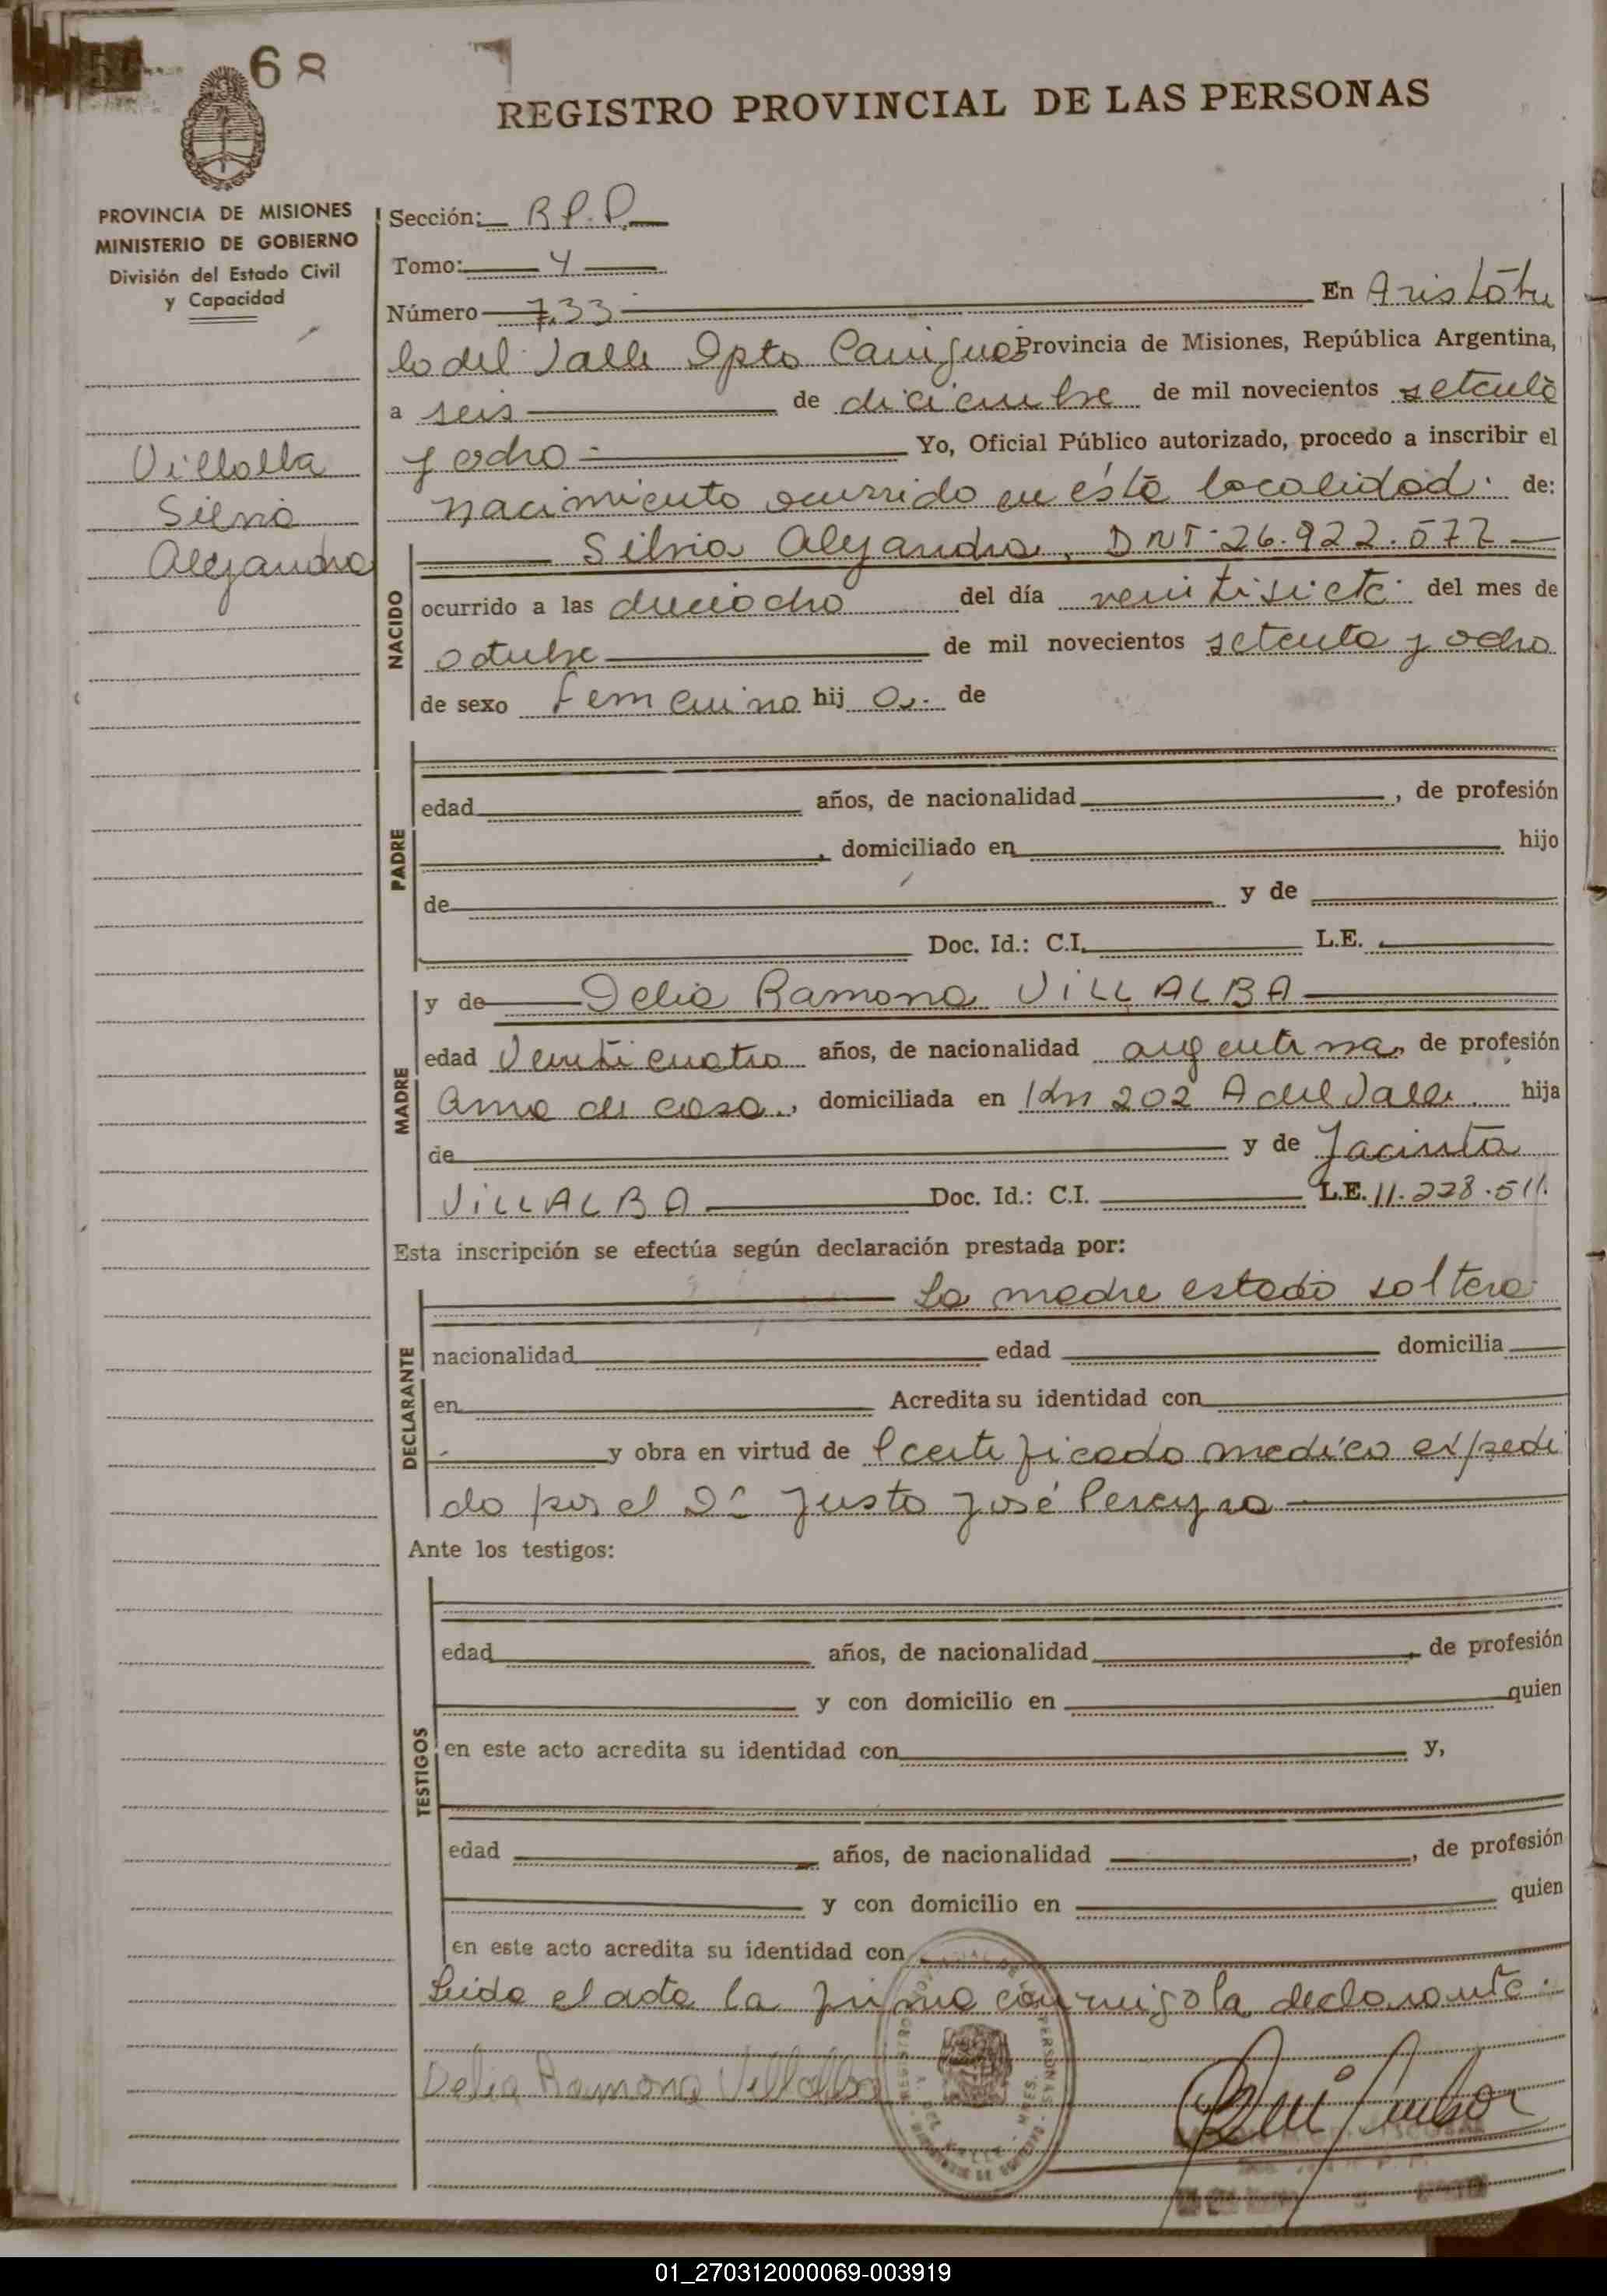 68
REGISTRO PROVINCIAL DE LAS PERSONAS
PROVINCIA DE MISIONES
MINISTERIO DE GOBIERNO
División del Estado Civil
y Capacidad
Villalba
Silvia
Alejandra
Sección: R.P.P.
Tomo: 4
Número 733 En Aristóbu
lo del Valle Dpto Cainguás Provincia de Misiones, República Argentina,
a seis de diciembre de mil novecientos setenta
y ocho Yo, Oficial Público autorizado, procedo a inscribir el
nacimiento ocurrido en ésta localidad. de:
NACIDO
Silvia Alejandra, DNI-26.922.577
ocurrido a las dieciocho del día veintisiete del mes de
octubre de mil novecientos setenta y ocho
de sexo femenino hij a. de
PADRE
edad años, de nacionalidad , de profesión
, domiciliado en hijo
de y de
Doc. Id.: C.I. L.E.
MADRE
y de Delia Ramona VILLALBA
edad Veinticuatro años, de nacionalidad argentina, de profesión
Ama de casa, domiciliada en Km 202 A del Valle. hija
de y de Jacinta
VILLALBA Doc. Id.: C.I. L.E. 11.228.511.
Esta inscripción se efectúa según declaración prestada por:
DECLARANTE
La madre estado soltera
nacionalidad edad domicilia
en Acredita su identidad con
y obra en virtud de l certificado medico expedi
do por el Dr Justo José Pereyra
Ante los testigos:
TESTIGOS
edad años, de nacionalidad , de profesión
y con domicilio en quien
en este acto acredita su identidad con y,
edad años, de nacionalidad , de profesión
y con domicilio en quien
en este acto acredita su identidad con
Leida el acta la firma conmigo la declarante.
Delia Ramona Villalba
01_270312000069-003919